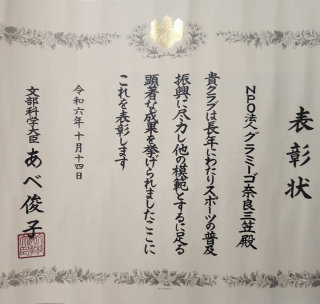 表彰状
NPO法人グラミーゴ奈良三笠殿
貴クラブは長年にわたりスポーツの普及
振興に尽力し他の模範とするに足る
顕著な成果を挙げられましたここに
これを表彰します
令和六年十月十四日
文部科学大臣 あべ俊子